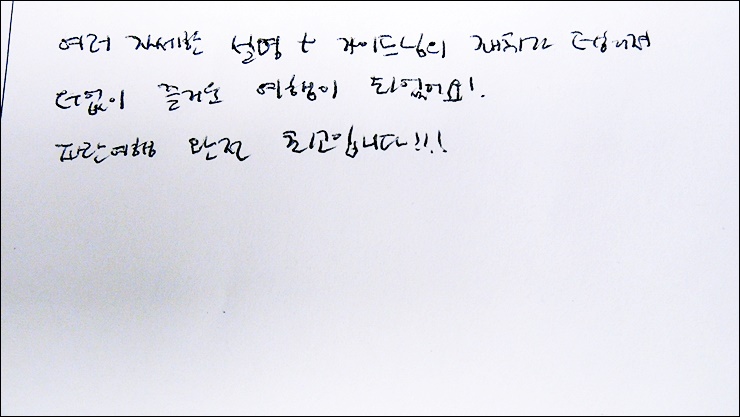 여러 자세한 설명 + 가이드님의 재치가 더해져
더없이 즐거운 여행이 되었어요!.
파란여행 완전 최고입니다!!!